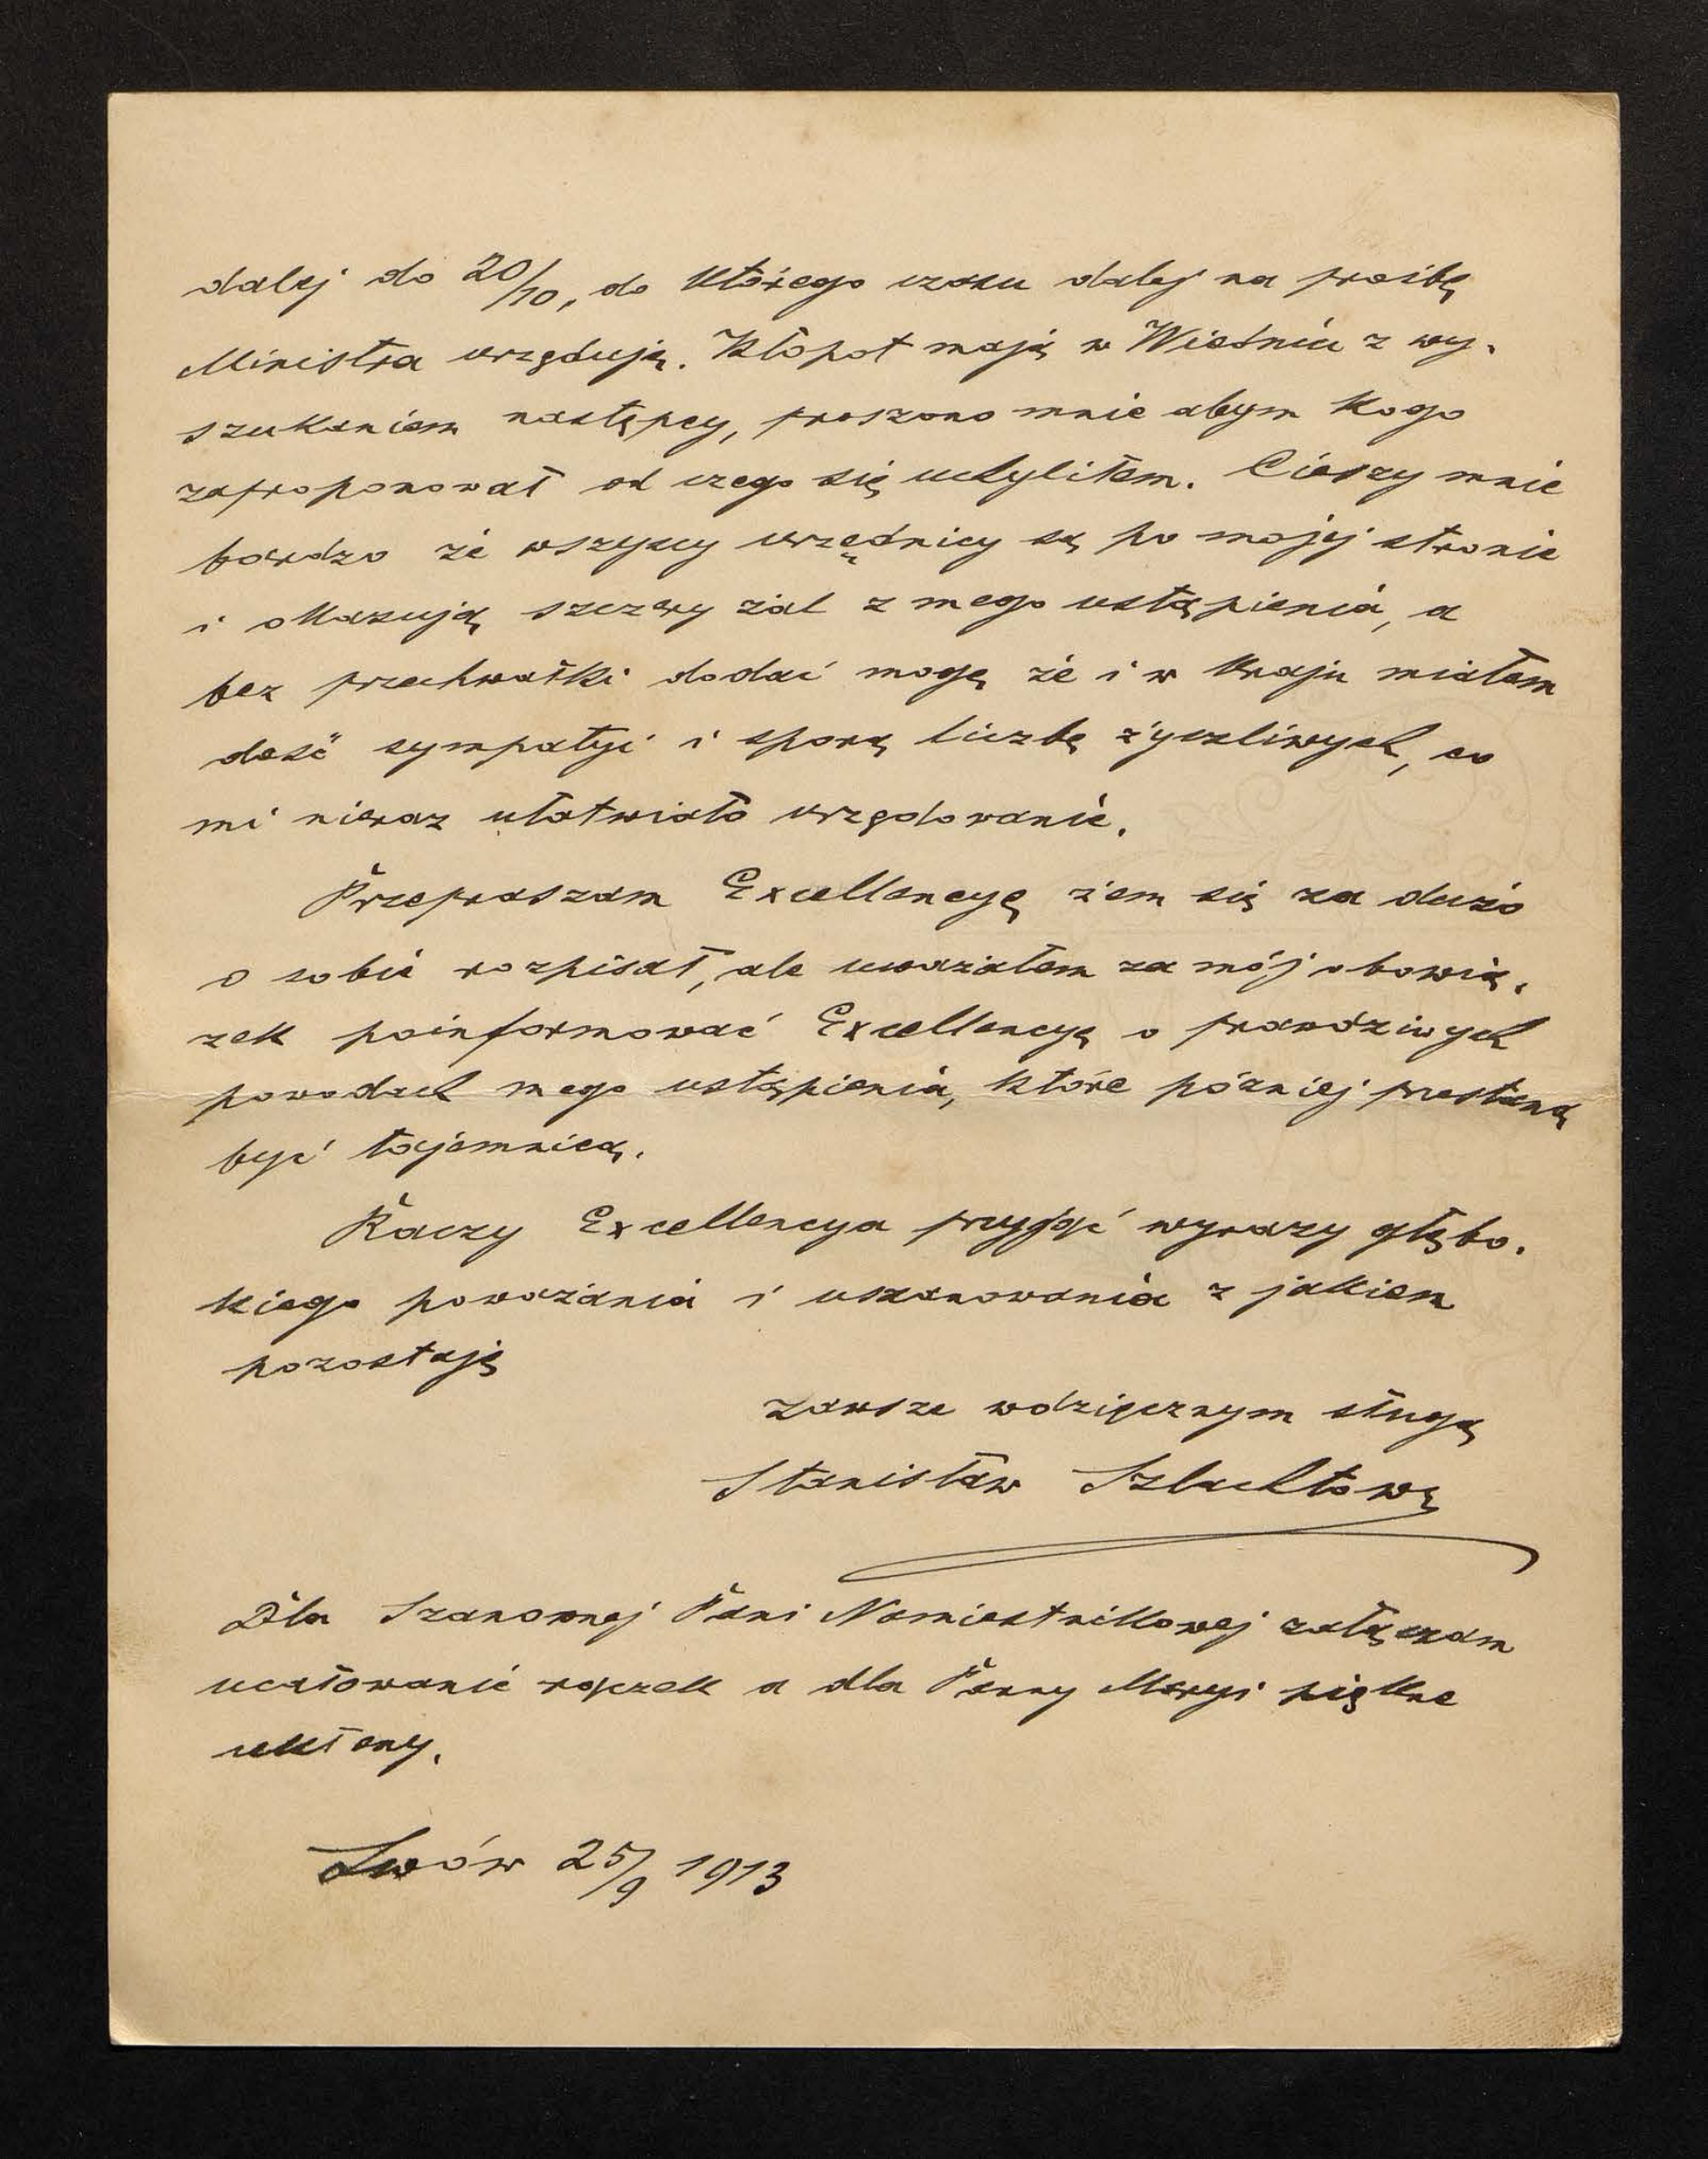 dalej do 20/10, do którego czasu dalej na prośbę
Ministra urzęduję. Kłopot mają w Wiedniu z wy-
szukaniem następcy, proszono mnie abym kogo
zaproponował od czego się uchyliłem. Cieszy mnie
bardzo że wszyscy urzędnicy są po mojej stronie
i okazują szczery żal z mego ustąpienia, a
bez przechwałki dodać mogę że i w kraju miałem
dość sympatyi i sporą liczbę życzliwych, co
mi nieraz ułatwiało urzędowanie.
Przepraszam Excellencyę żem się za dużo
o sobie rozpisał, ale uważałem za mój obowią-
zek poinformować Excellencyę o prawdziwych
powodach mego ustąpienia, które później przestaną
być tajemnicą.
Raczy Excellencya przyjąć wyrazy głębo-
kiego poważania i uszanowania z jakiem
pozostaję
zawsze wdzięcznym sługą
Stanisław Szlachtow
Dla Szanownej Pani Namiestnikowej załączam
ucałowanie rączek a dla Panny Maryi piękne
ukłony.
Lwów 25/9 1913